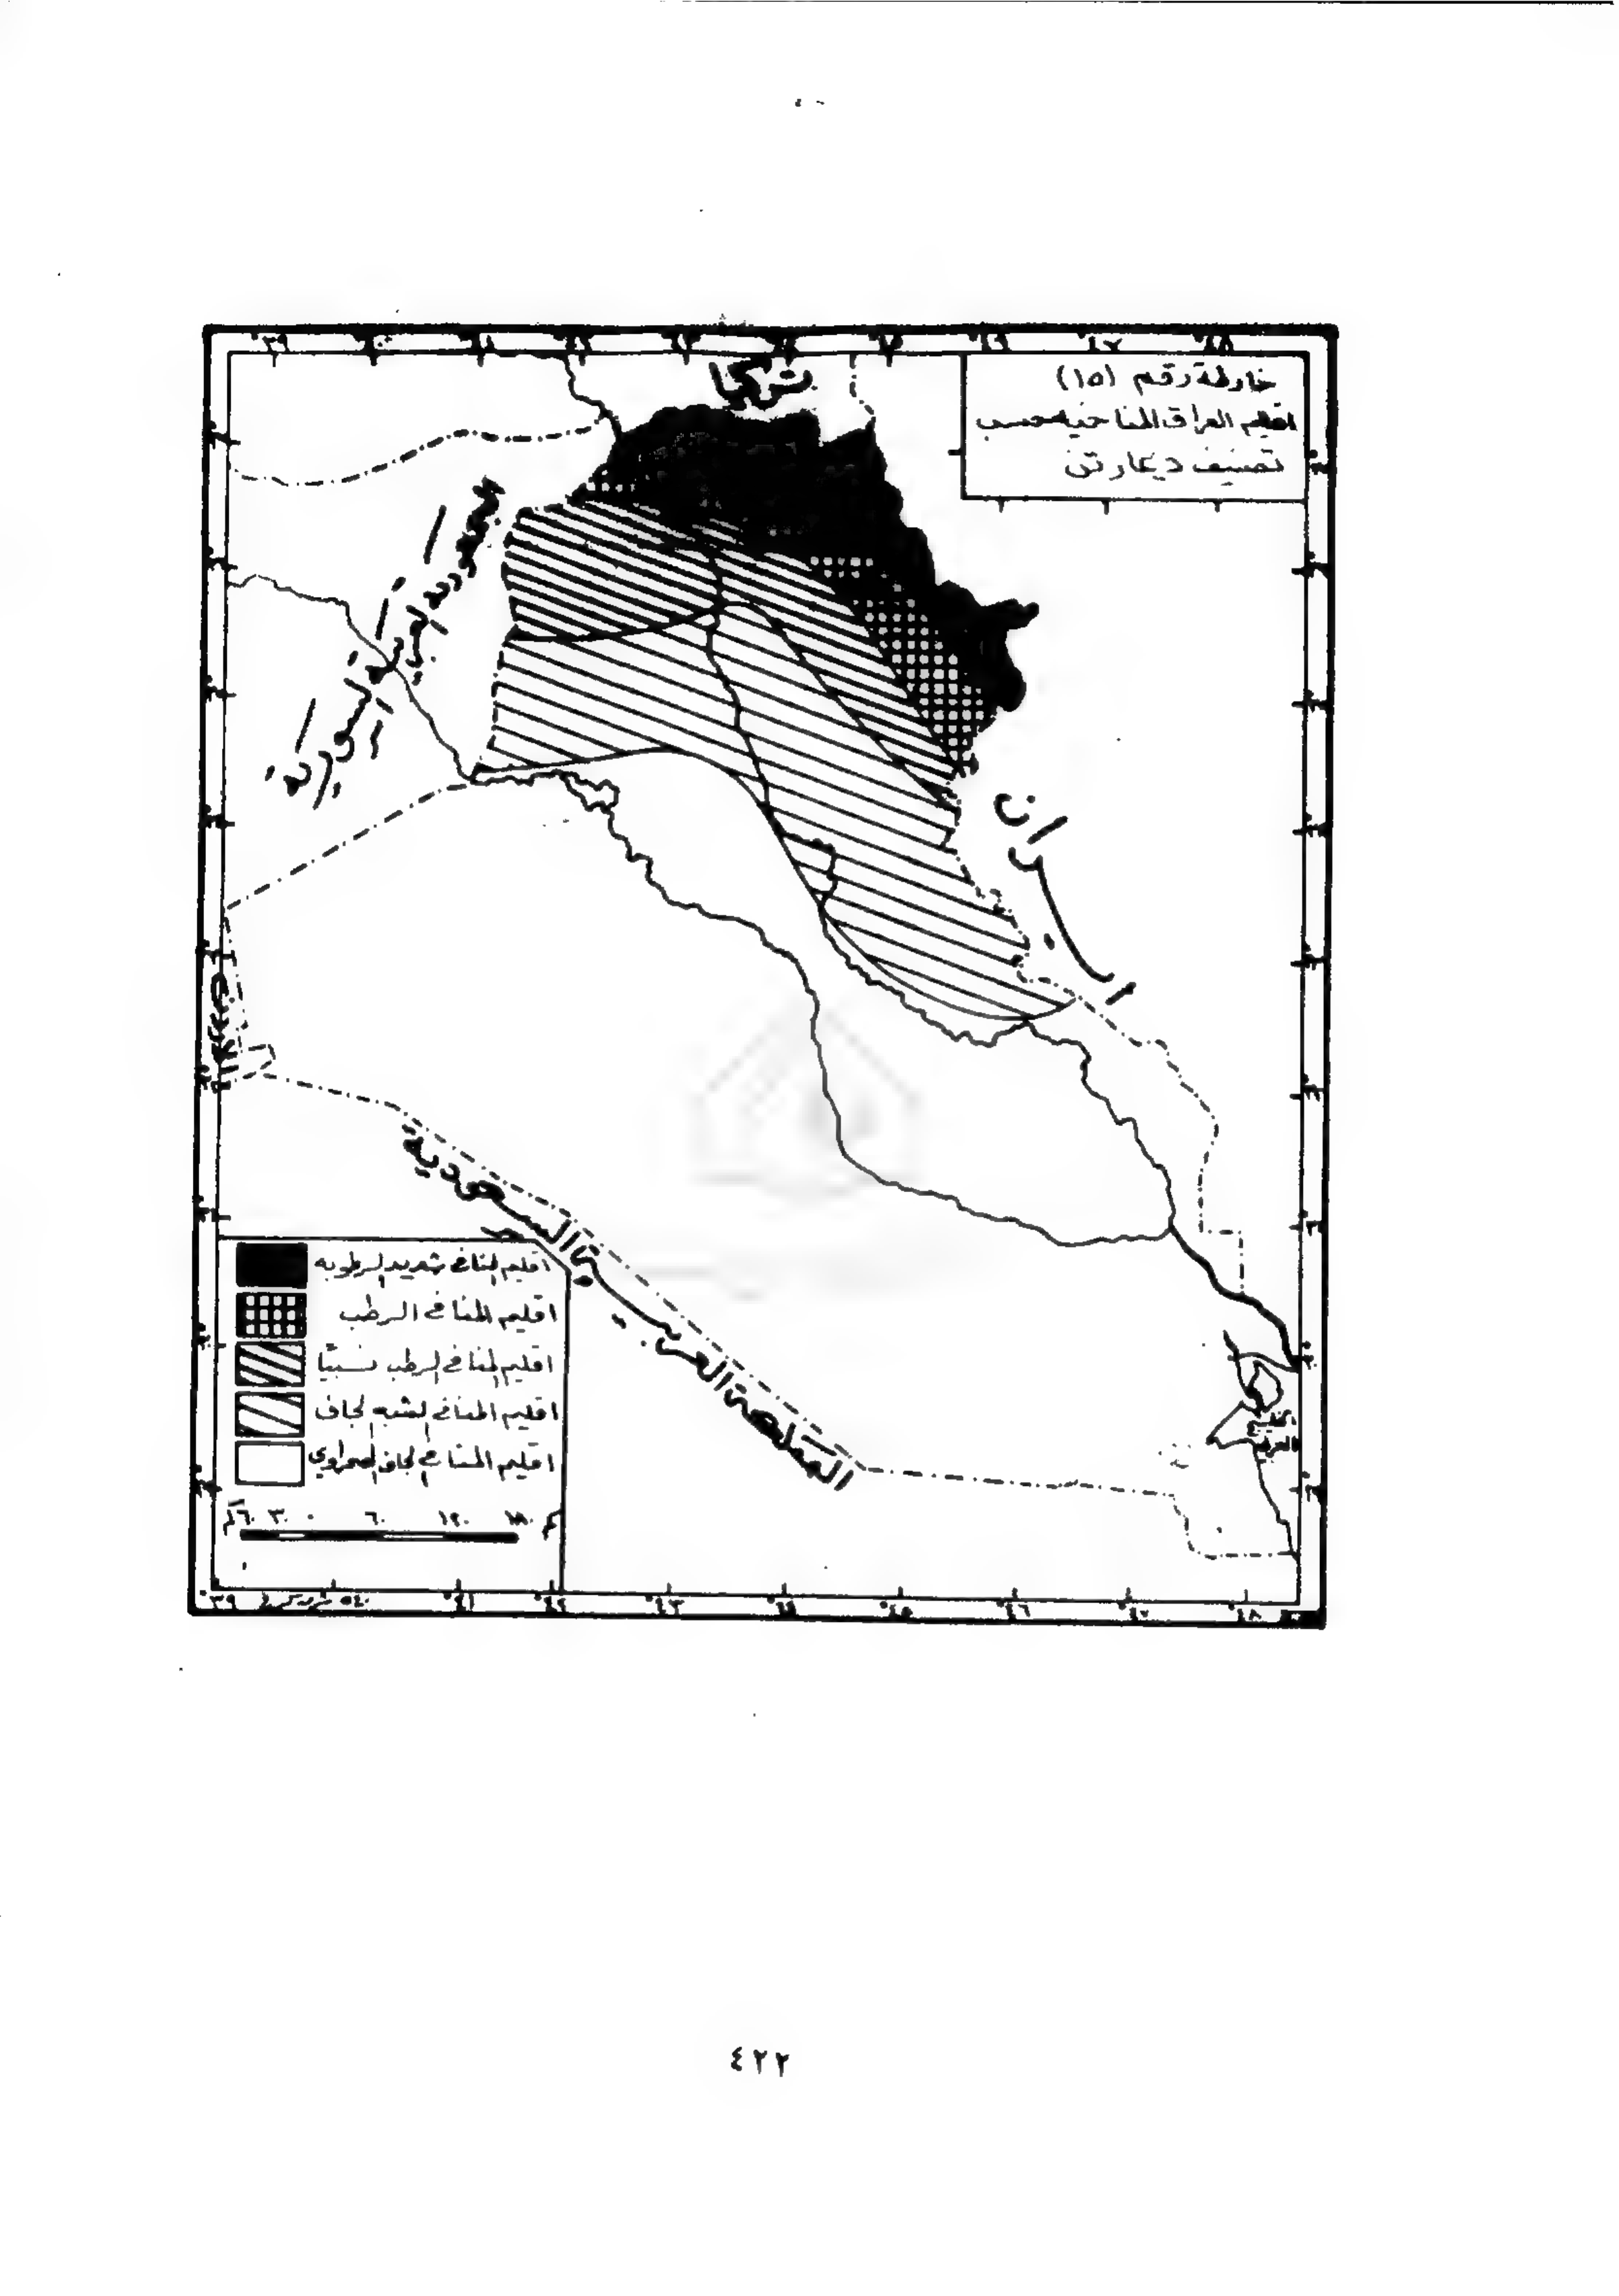 خارطة رقم (١٥)
اقليم العراق المناخيه حسب
تصنيف ديمارتن
تركيا
الجمهورية العربية السورية
ايران
المملكة العربية السعودية
اقليم المناخي شديد الرطوبه
اقليم المناخي الرطب
اقليم المناخي الرطب نسبيًا
اقليم المناخي الشبه الجاف
اقليم المناخي الجاف الصحراوي
٦٠ ٣٠ ٠ ٦٠ ١٢٠ ١٨٠ كم
٣٩ ٤١ ٤٢ ٤٣ ٤٤ ٤٥ ٤٦ ٤٧ ٤٨
٤٢٢